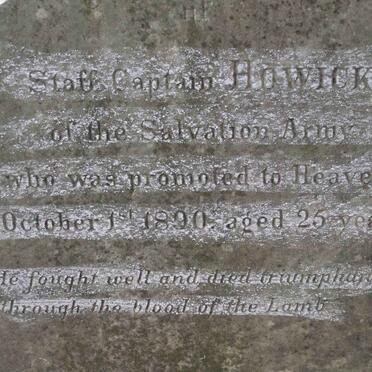 Staff Captain HOWICK
of the Salvation Army
who was promoted to Heave
October 1st 1890, aged 25 yea
He fought well and died triumphan
through the blood of the Lamb